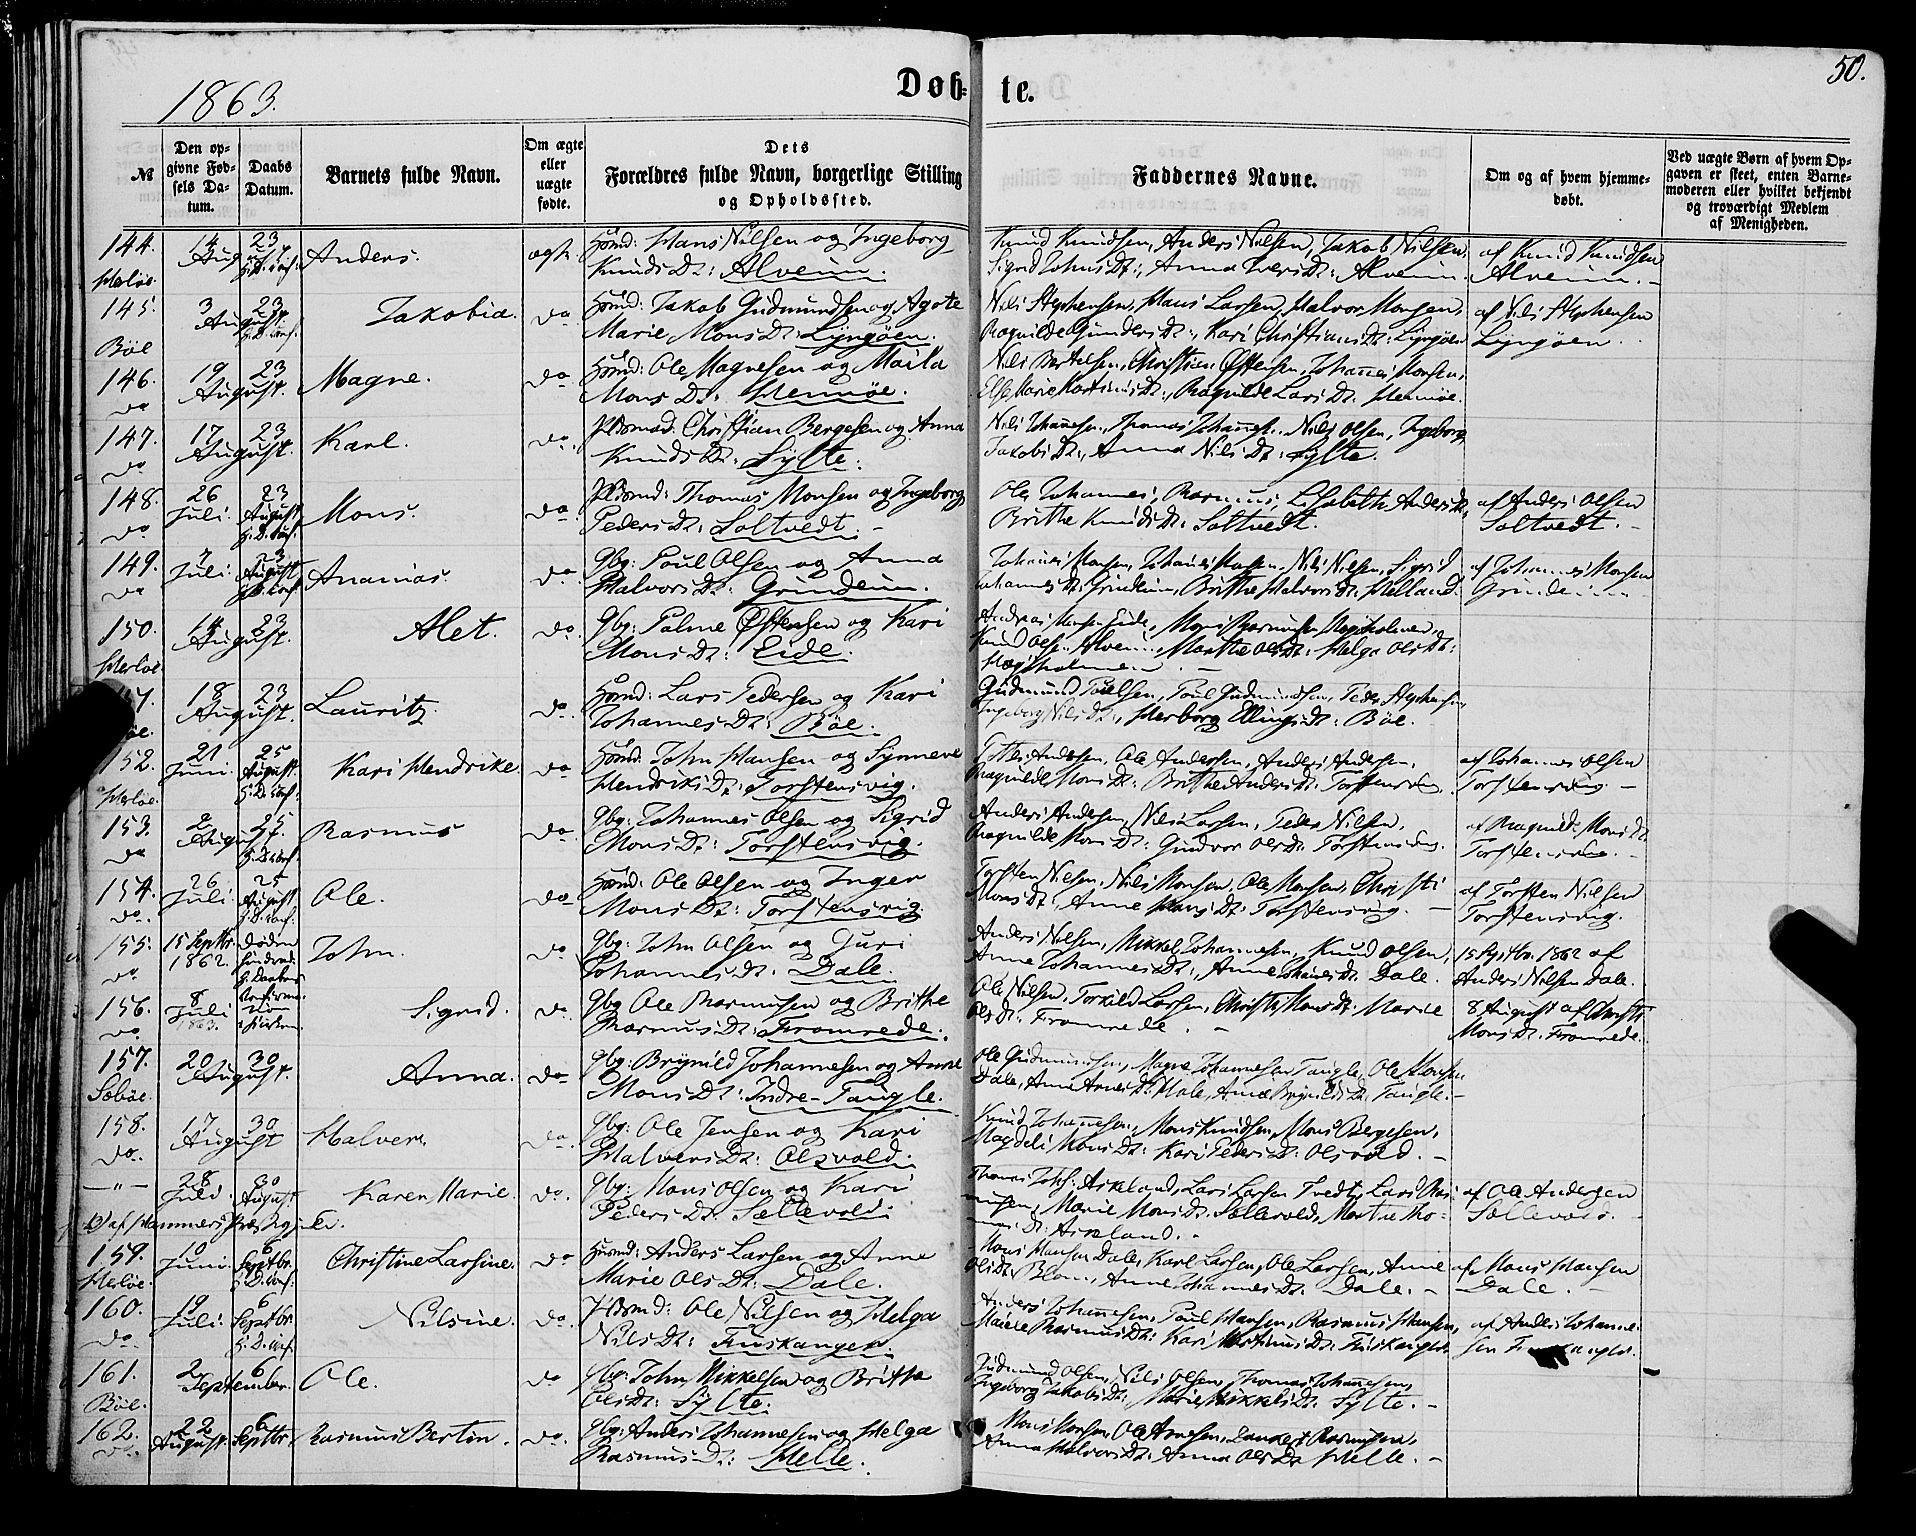 1863.
Døb-
te.
50.
№
Den op-
givne Fød-
sels Da-
tum.
Daabs
Datum.
Barnets fulde Navn.
Om ægte
eller
uægte
fødte.
Dets
Forældres fulde Navn, borgerlige Stilling
og Opholdssted.
Faddernes Navne.
Om og af hvem hjemme-
døbt.
Ved uægte Børn af hvem Op-
gaven er skeet, enten Barne-
moderen eller hvilket bekjendt
og troværdigt Medlem
af Menigheden.
144.
Herløe
14 23
August
Anders.
Hans Nilsen og Ingeborg
Knuds Dt: Alveim.
Knud Knudsen, Anders Nilsen, Jakob Nilsen,
Sigrid Johns Dt:, Anna Ivers Dt: Alveim.
af Knud Knudsen
Alveim.
145.
Bøe
3 23
August
Jakobia.
do
Jakob Gudmundsen og Agate
Marie Mons Dt: Lyngøen.
Nils Stephensen, Hans Larsen, Halvor Monsen,
Ragnilde Gunders Dt:, Kari Christians Dt: Lyngøen
af Nils Stephensen
Lyngøen.
146.
do
19 23
August.
Magne.
do
Ole Magnesen og Marta
Mons Dt: Hennøe.
Nils Bertelsen, Christian Østensen, Johannes Monsen,
Else Marie Martinus Dt:, Ragnilde Lars Dt: Hennøe.
147.
do
17 23
August.
Karl.
do
Christian Bergesen og Anna
Knuds Dt: Sylte.
Nils Johannesen, Thomas Johannes., Nils Olsen, Ingeborg
Jakobs Dt:, Anna Nils Dt: Sylte.
148.
do
26
Juli
23
August
Mons.
do
Thomas Monsen og Ingeborg
Peders Dt: Soltvedt.
Ole Johannes, Rasmus, Lisabeth Anders Dt,
Brithe Knuds Dt: Soltvedt.
af Anders Olsen
Soltvedt.
149.
do
Juli
23
August
Ananias.
do
Gbg: Poul Olsen og Anna
Halvors Dt: Grindeim.
Johannes Monsen, Johannes Hansen, Nils Nilsen, Sigrid
Johannes Dt: Grindeim, Brithe Halvors Dt: Helland.
af Johannes Monsen
Grindeim
150.
Herløe
14 23
August.
Alet.
do
Gbg: Palme Østensen og Kari
Mons Dt: Eide.
Knud Olsen Alveim, Marthe Ols Dt: Helga Ols Dt:
18 23
August.
Lauritz.
do
Lars Pedersen og Kari
Johannes Dt: Bøe.
Gudmund Poulsen, Poul Gudmundsen, Peder Stephensen,
Ingeborg Nils Dt:, Herborg Ellings Dt: Bøe.
152.
Herløe
21
Juni
25
August.
Kari Hendrike
do
John Hansen og Synneve
Hendriks Dt: Torstensvig.
Andersen, Ole Andersen, Anders Andersen,
Ragnilde Mons Dt: Brithe Anders Dt: Torstensvig.
af Johannes Olsen
Torstensvig.
153.
do
2 25
August
Rasmus
do
Gbg: Johannes Olsen og Sigrid
Mons Dt: Torstensvig.
Anders Andersen, Nils Larsen, Peder Nilsen,
Ragnilde Mons Dt: Gundvor Ols Dt: Torstensvig.
af Ragnilde Mons Dt
Torstensvig.
154.
do
26
Juli
25
August
Ole.
do
Ole Olsen og Inger
Mons Dt: Torstensvig.
Torsten Nilsen, Nils Monsen, Ole Monsen, Christi
Mons Dt, Anne Hans Dt: Torstensvig.
af Torsten Nilsen
Torstensvig.
155.
do
15 Septbr.
1862.
John.
do
Gbg: John Olsen og Guri
Johannes Dt: Dale.
Anders Nilsen, Mikkel Johannesen, Knud Olsen,
Anne Johannes Dt:, Anne Johannes Dt: Dale.
15 Septbr. 1862 af
Anders Nilsen Dale.
156.
do
8
Juli
1863.
Sigrid.
do.
Gbg Ole Rasmussen og Brithe
Rasmus Dt: Fromrede.
Ole Nilsen, Torkild Larsen, Christi Mons Dt: Marie
Ols Dt: Fromrede.
8 August af Christi
Mons Dt: Fromrede.
157.
Sæbøe.
20 30
August.
Anna.
do
Gbg: Brynild Johannesen og Anne
Mons Dt: Indre-Tangle.
Ole Gudmundsen, Magne Johannesen Tangle, Ole Monsen
Dale, Anne Arnes Dt: Hole, Anne Brynilds Dt: Tangle.
158.
do.
17 30
August
Halver.
do
Gbg: Ole Jensen og Kari
Halvers Dt: Olsvold.
Knud Johannesen, Mons Knudsen, Mons Bergesen,
Magdeli Mons Dt: Kari Peders Dt: Olsvold.
— „ —
28
Juli.
30
August
Karen Marie.
do.
Gbg: Mons Olsen og Kari
Peders Dt: Sællevold.
Thomas Johs: Askeland, Lars Larsen Tvedt, Lars Ras-
musen, Marie Mons Dt: Sællevold, Marthe Tho-
mas Dt: Askeland.
af Ole Andersen
Sællevold.
af Hammers Præstegj.
159.
Herløe.
10
Juni
6
Septbr.
Christine Larsine.
do
Husmd: Anders Larsen og Anne
Marie Ols Dt: Dale.
Mons Hansen Dale, Karl Larsen, Ole Larsen, Anne
Ols Dt: Blom, Anne Johannes Dt: Dale.
af Mons Hansen
Dale.
160.
do.
19
Juli
6
Septbr.
Nilsine.
do.
Ole Nilsen og Helga
Nils Dt: Furskanger.
Anders Johannesen, Poul Hansen, Rasmus Hansen,
Marie Rasmus Dt: Kari Martinus Dt: Furskanger.
af Anders Johanne-
sen Furskanger.
161.
Bøe.
2 6
September.
Ole.
do
Gbg: John Mikkelsen og Brithe
Ols Dt: Sylte.
Gudmund Olsen, Nils Olsen, Thomas Johannesen,
Ingeborg Jakobs Dt: Marie Mikkels Dt: Sylte.
162.
do.
22
August.
6
Septbr.
Rasmus Bertin.
do.
Gbg: Anders Johannesen og Helga
Rasmus Dt: Helle.
Mons Monsen, Ole Arnesen, Rasmusen,
Anna Halvors Dt: Anna Ols Dt Helle.